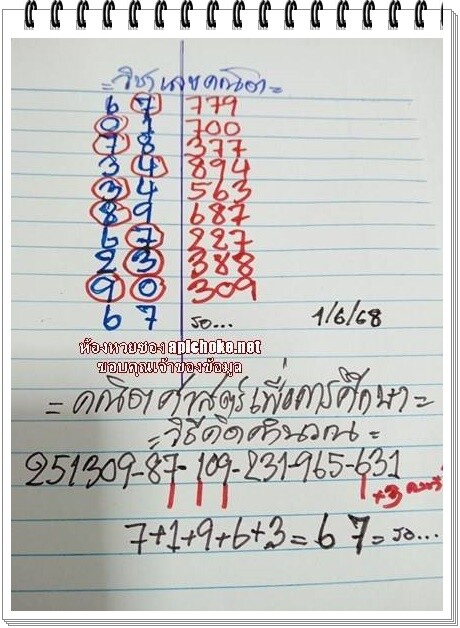 = วิชาเลขคณิต =
6 7 779
0 1 700
7 8 377
3 4 894
3 4 563
8 9 687
6 7 227
2 3 388
9 0 309
6 7 รอ... 1/6/68
ห้องหวยซอง apichoke.net
ขอบคุณเจ้าของข้อมูล
= คณิตศาสตร์เพื่อการศึกษา =
= วิธีคิดคำนวณ =
251309-87-109-231-965-631
+3
7+1+9+6+3 = 6 7 = รอ...